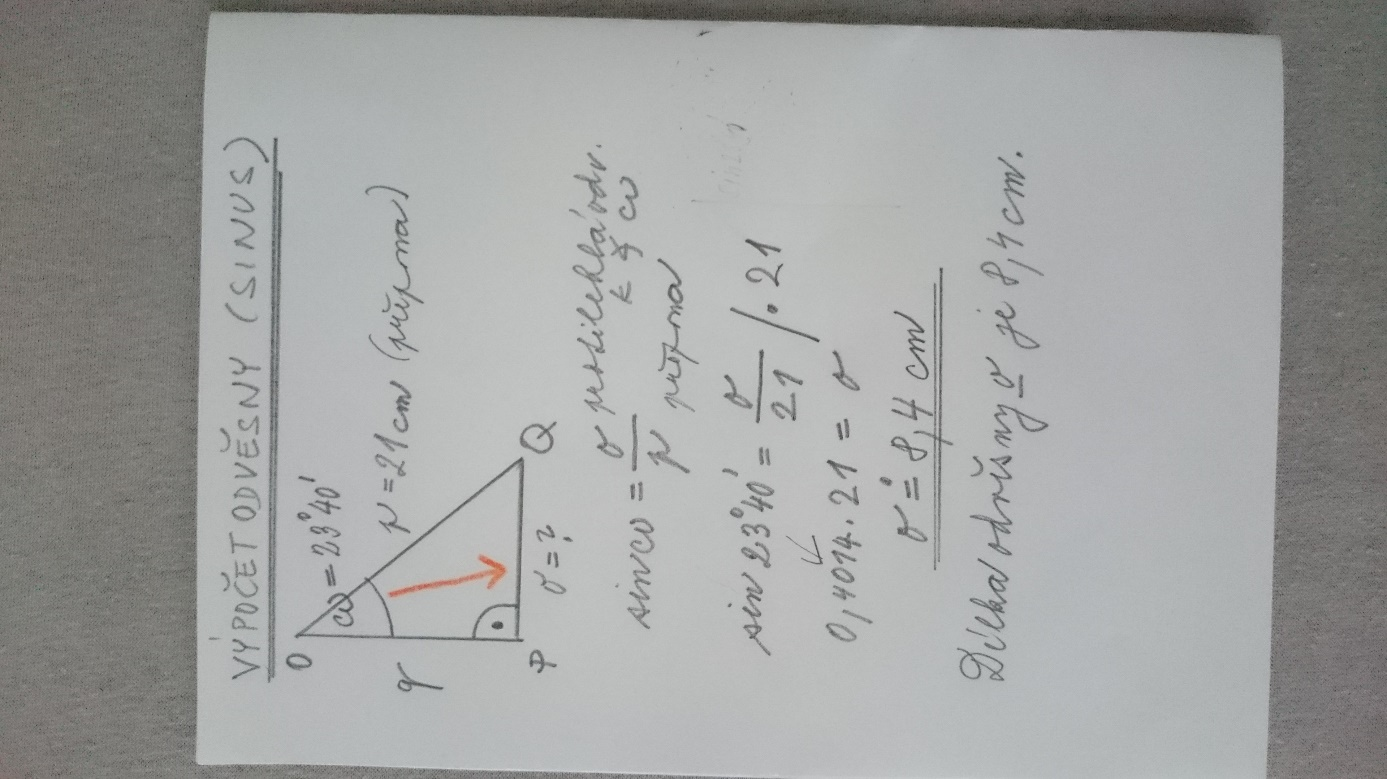 VÝPOČET ODVĚSNY (SINUS)
O
ω = 23°40'
p = 21 cm (přepona)
q
P
Q
o = ?
sin ω = o/p protilehlá odv. k ∢ ω / přepona
sin 23°40' = o/21 /. 21
0,4014 . 21 = o
o ≐ 8,4 cm
Délka odvěsny o je 8,4 cm.